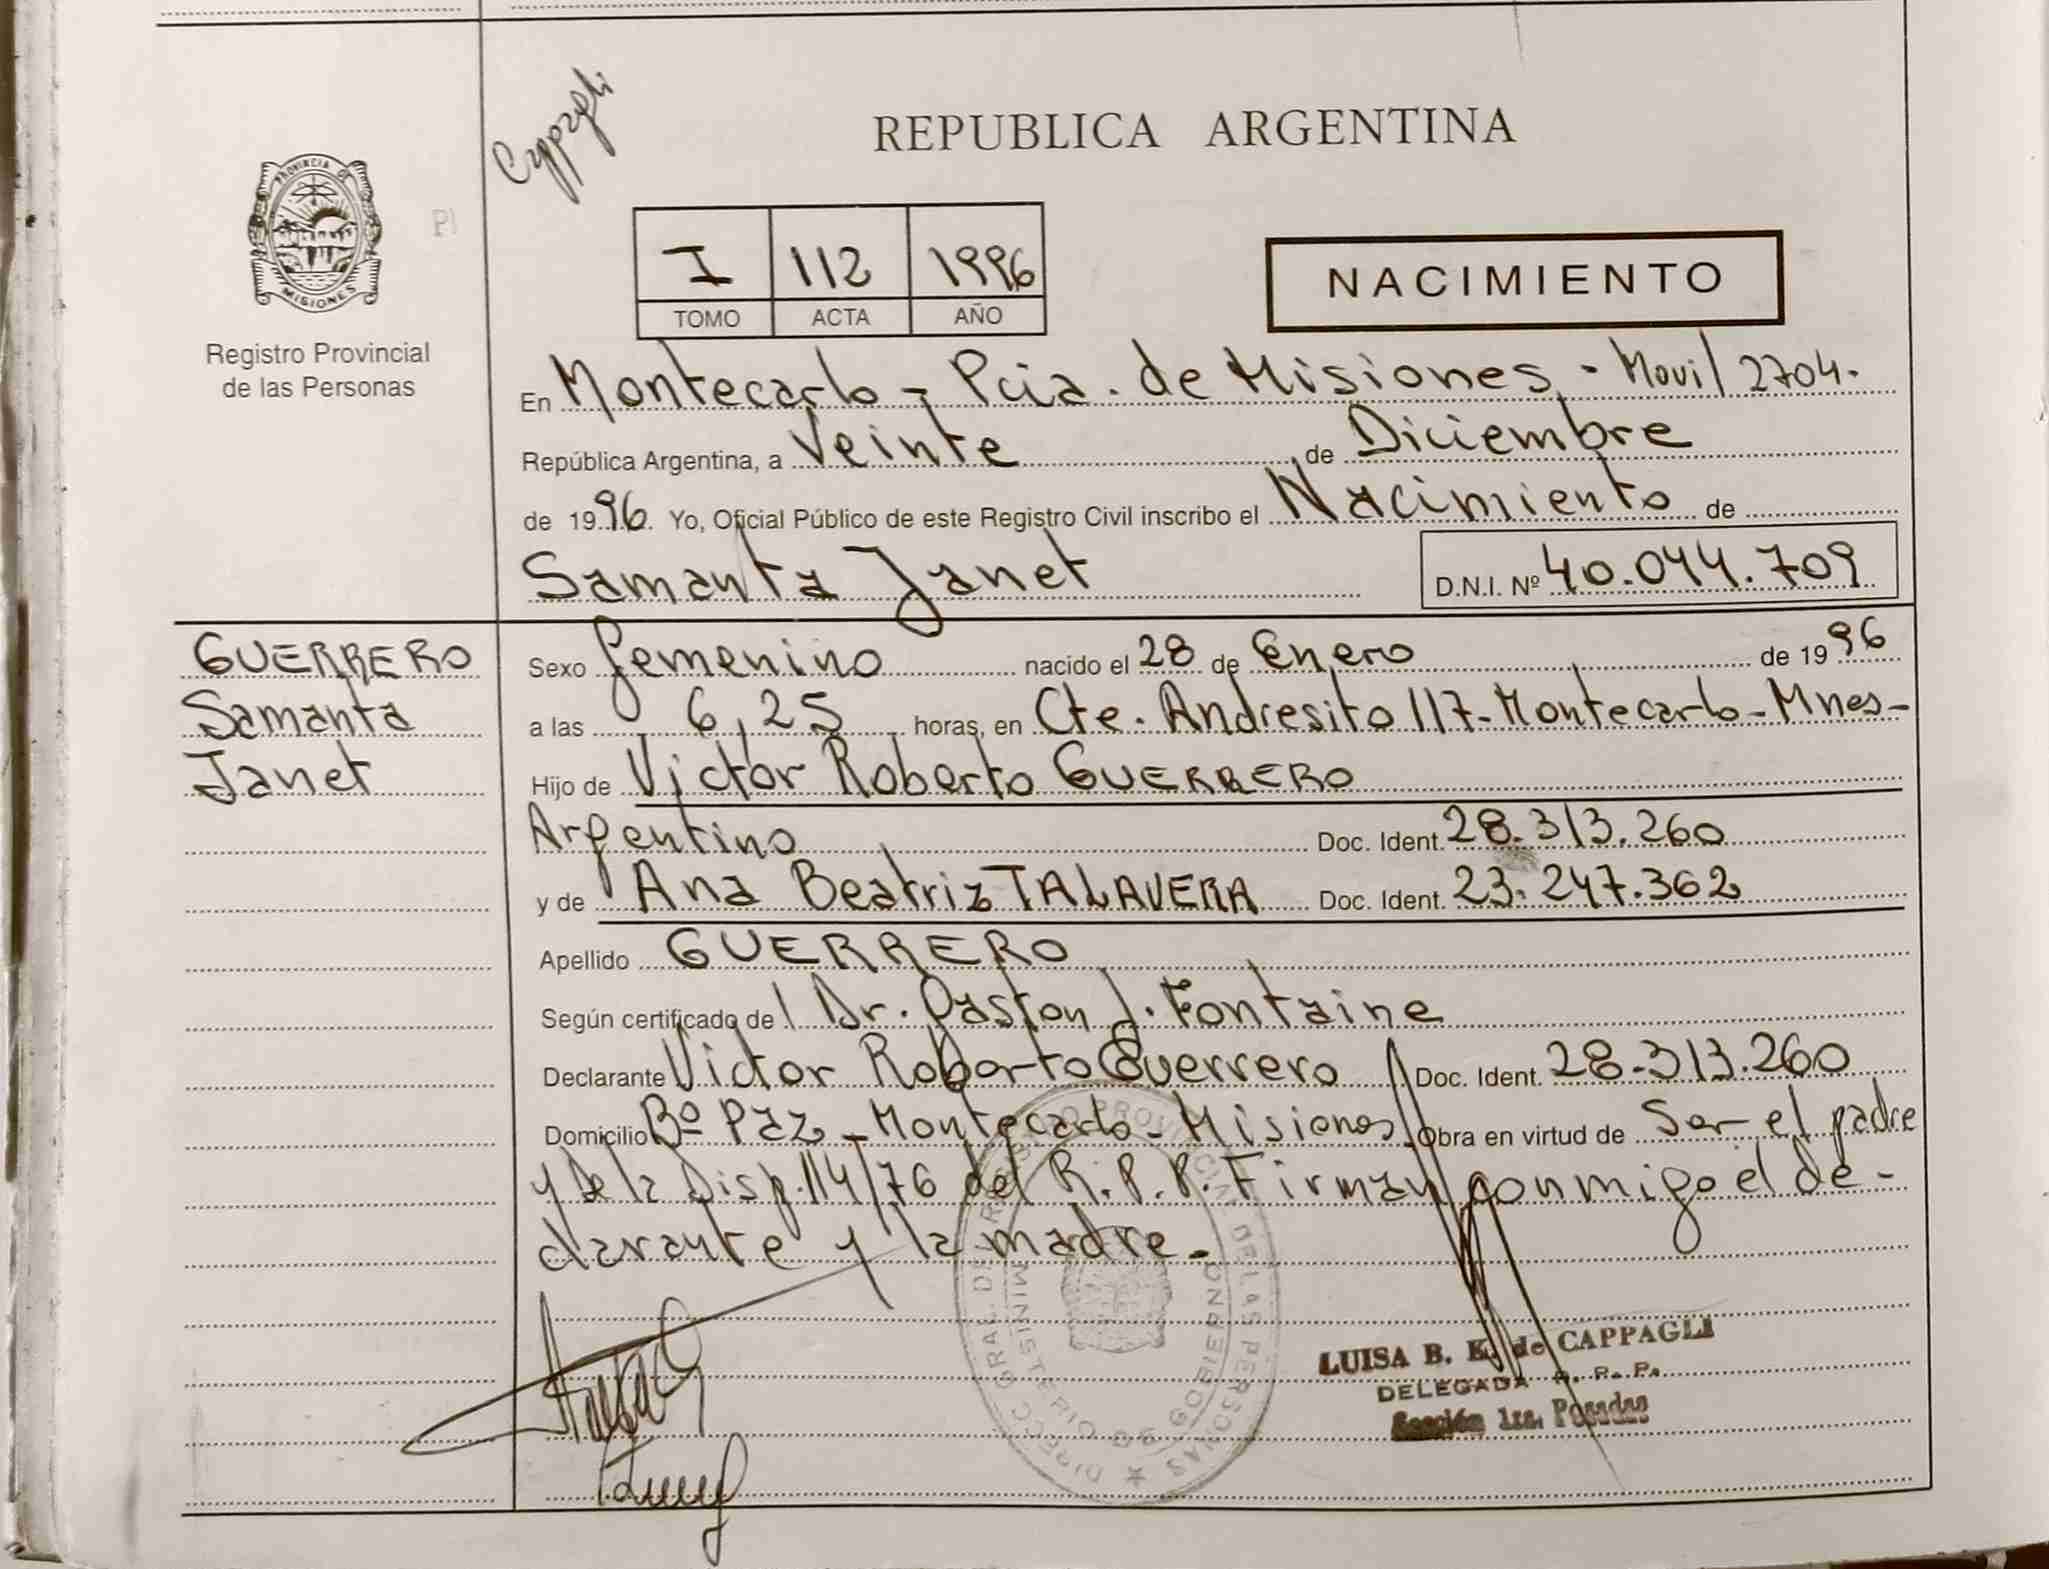 Cappagli
REPUBLICA ARGENTINA
PROVINCIA DE
MISIONES
Registro Provincial
de las Personas
I 112 1996
TOMO ACTA AÑO
NACIMIENTO
En Montecarlo - Pcia. de Misiones - Movil 2704.
República Argentina, a Veinte de Diciembre
de 1996. Yo, Oficial Público de este Registro Civil inscribo el Nacimiento de
Samanta Janet D.N.I. Nº 40.044.709
GUERRERO
Samanta
Janet
Sexo femenino nacido el 28 de Enero de 1996
a las 6,25 horas, en Cte. Andresito 117-Montecarlo-Mnes-
Hijo de Victor Roberto GUERRERO
Argentino Doc. Ident. 28.313.260
y de Ana Beatriz TALAVERA Doc. Ident. 23.247.362
Apellido GUERRERO
Según certificado del Dr. Gaston J. Fontaine
Declarante Victor Roberto Guerrero Doc. Ident. 28.313.260
Domicilio Bº Paz - Montecarlo - Misiones Obra en virtud de Ser el padre
y de la Disp. 114/76 del R.P.P. Firman conmigo el de-
clarante y la madre.
DIRECC. GRAL. DEL REGISTRO PROVINCIAL DE LAS PERSONAS
MINISTERIO DE GOBIERNO
LUISA B. K. de CAPPAGLI
DELEGADA R. P. P.
Sección 1ra. Posadas